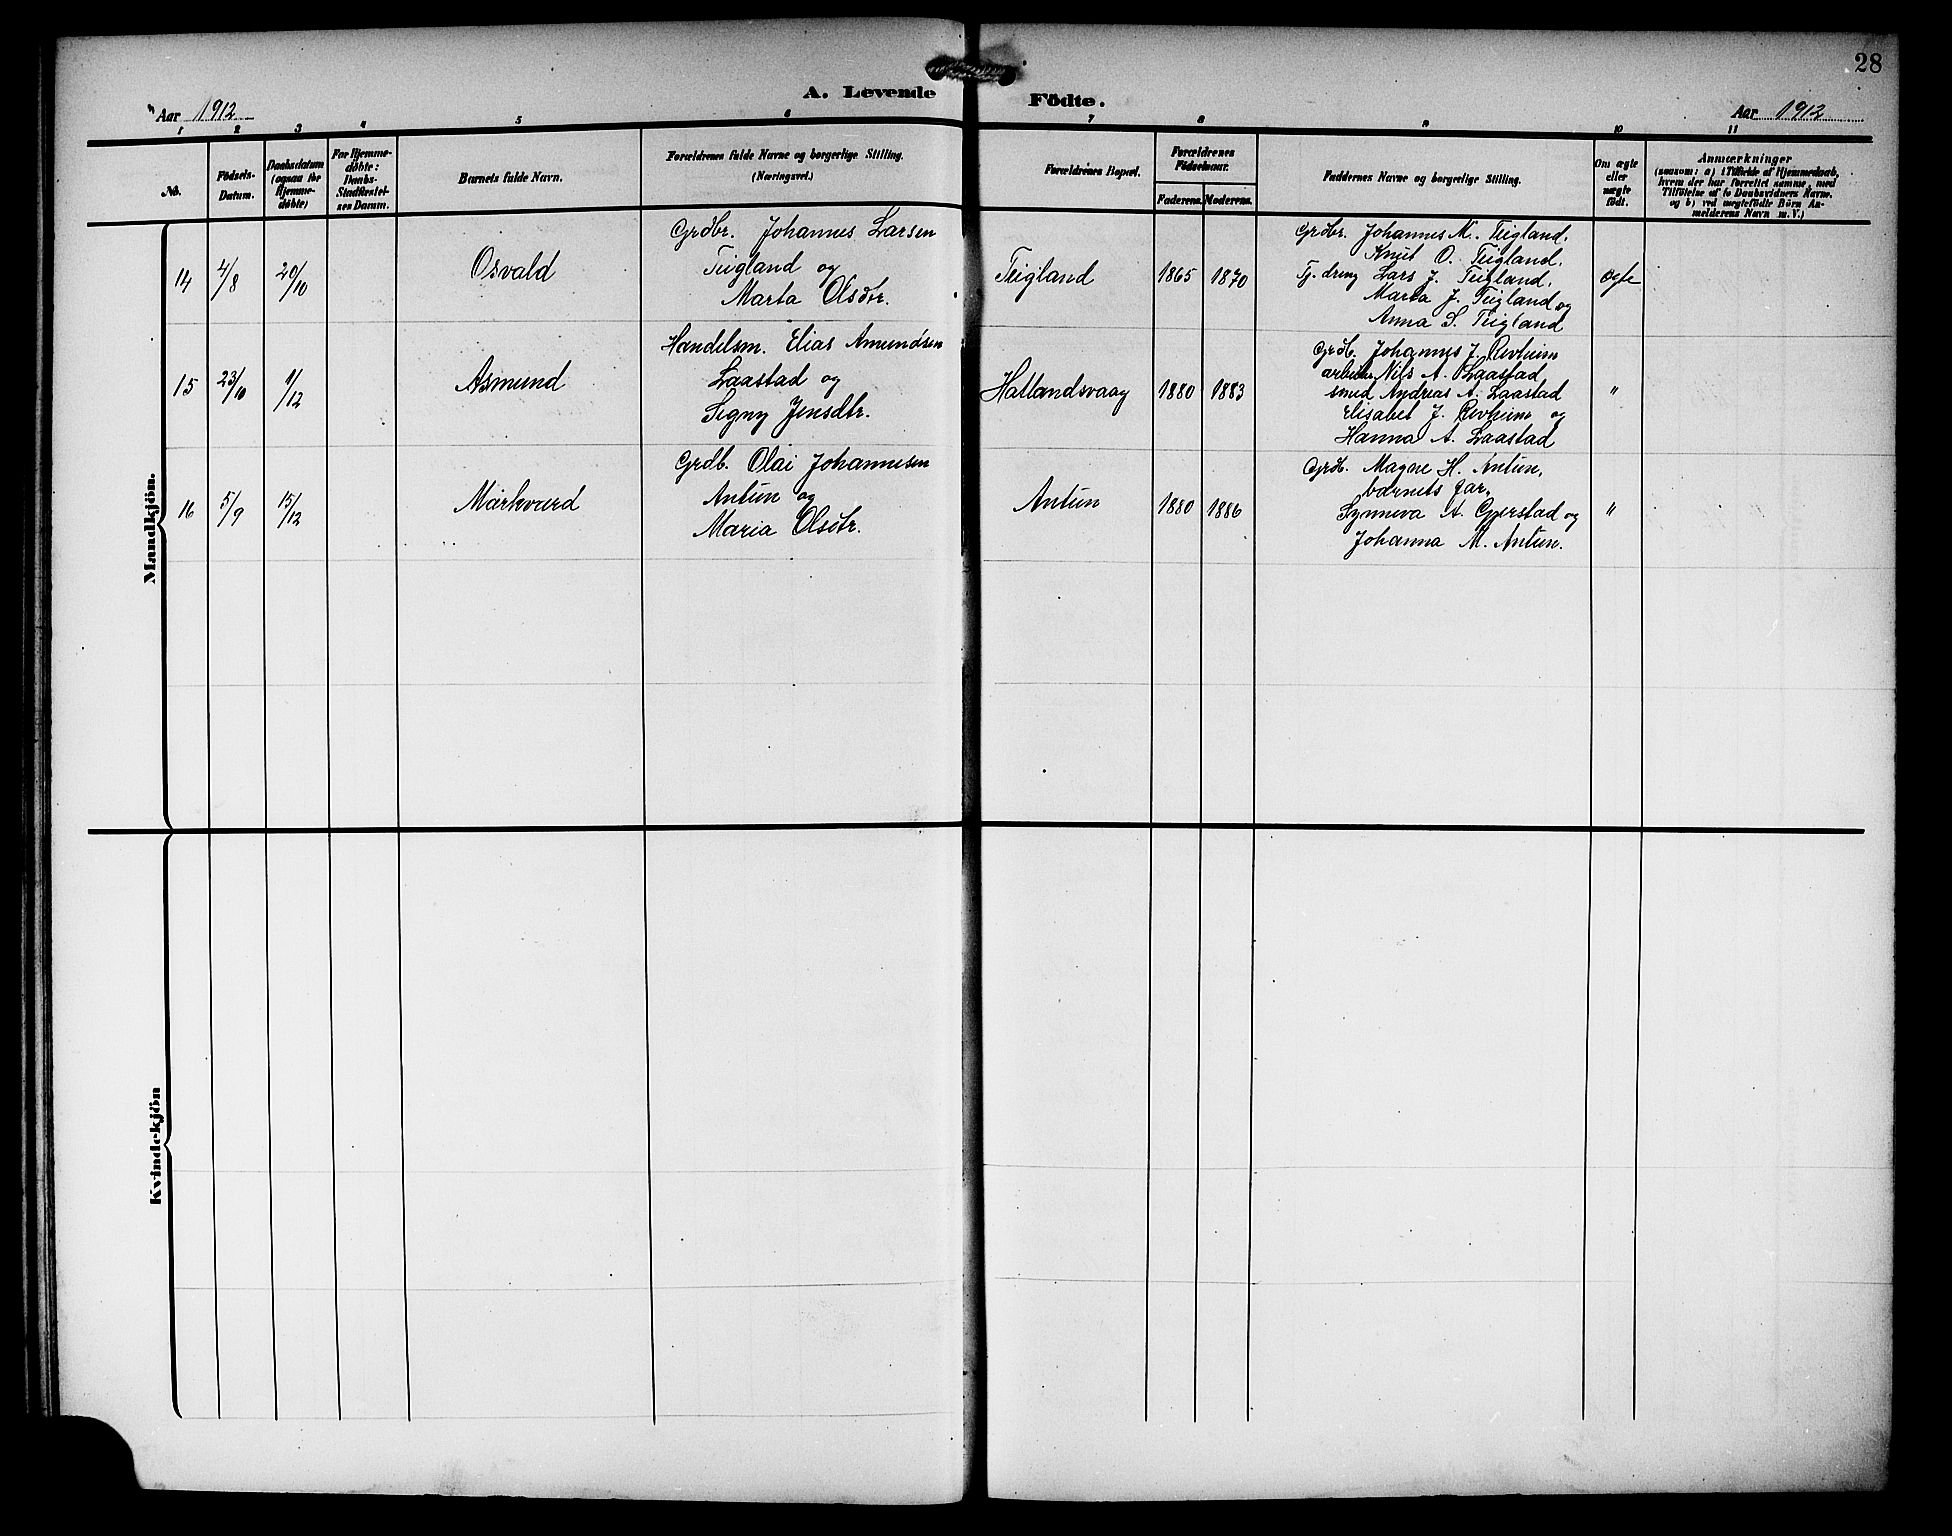 28
Aar 1912
A. Levende Födte.
Aar 1912
1 2 3 4 5 6 7 8 9 10 11
No.
Födsels-
Datum.
Daabsdatum
(ogsaa for
Hjemme-
döbte)
For Hjemme-
döbte:
Daabs-
Stadfæstel-
ses Datum.
Barnets fulde Navn.
Forældrenes fulde Navne og borgerlige Stilling.
(Næringsvei.)
Forældrenes Bopæl.
Forældrenes
Födselsaar.
Faderens. Moderens.
Faddernes Navne og borgerlige Stilling.
Om ægte
eller
uægte
födt.
Anmærkninger
(saasom: a) i Tilfælde af Hjemmedaab,
hvem der har forrettet samme, med
Tilföielse af to Daabsvidners Navne.
og b) ved uægtefödte Börn An-
melderens Navn m. V.)
Mandkjön.
14 4/8 20/10 Osvald
Grdbr. Johannes Larsen
Teigland og
Marta Olsdtr.
Teigland 1865 1870
Grdbr. Johannes M. Teigland.
Knut O. Teigland.
Tj. dreng Lars J. Teigland.
Marta J. Teigland og
Anna S. Teigland
Ægte
15 23/10 1/12 Asmund
Handelsm. Elias Amundsen
Laastad og
Signy Jensdtr.
Hallandsvaag 1880 1883
Grdb. Johannes J. Revheim
arbeider Nils A. Laastad
smed Andreas A. Laastad
Elisabet J. Revheim og
Hanna A. Laastad
"
16 5/9 15/12 Markvard
Grdb. Olai Johannesen
Antun og
Maria Olsdtr.
Antun 1880 1886
Grdb. Magne H. Antun,
barnets far,
Synneva A. Gjerstad og
Johanna M. Antun.
"
Kvindekjön